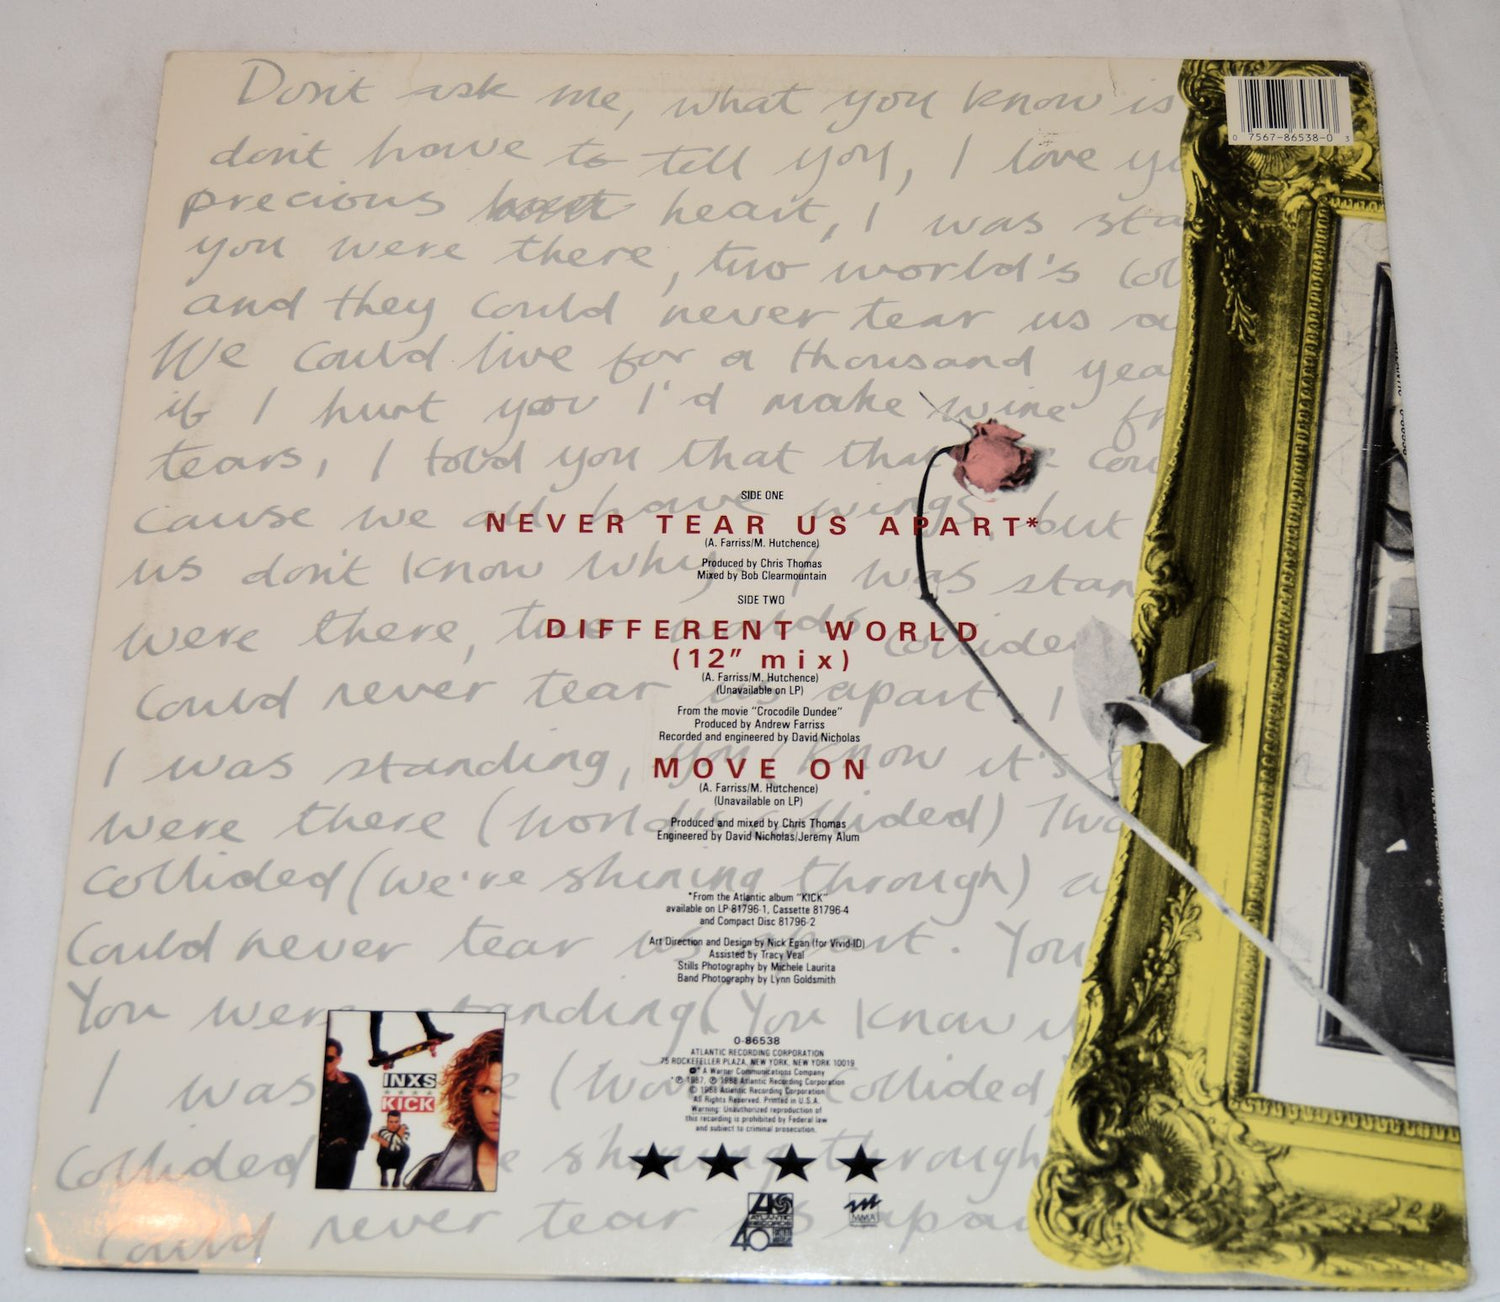 Don't ask me, what you know is
don't have to tell you, I love yo
precious heart, I was sta
you were there, two world's col
and they could never tear us a
We could live for a thousand yea
if I hurt you I'd make wine fr
tears, I told you that tha
cou
cause we all have wings, but
us don't know why I was stan
were there, two worlds collided
could never tear us apart I
I was standing, you know it's
were there (worlds collided) Two
collided (we're shining through) a
Could never tear us apart. You
You were standing (You know i
I was (Wor collided)
Collided sh through
Could never tear us apar
0 7567-86538-0 3
SIDE ONE
NEVER TEAR US APART*
(A. Farriss/M. Hutchence)
Produced by Chris Thomas
Mixed by Bob Clearmountain
SIDE TWO
DIFFERENT WORLD
(12" mix)
(A. Farriss/M. Hutchence)
(Unavailable on LP)
From the movie "Crocodile Dundee"
Produced by Andrew Farriss
Recorded and engineered by David Nicholas
MOVE ON
(A. Farriss/M. Hutchence)
(Unavailable on LP)
Produced and mixed by Chris Thomas
Engineered by David Nicholas/Jeremy Alum
*From the Atlantic album "KICK"
available on LP 81796-1, Cassette 81796-4
and Compact Disc 81796-2
Art Direction and Design by Nick Egan (for Vivid-ID)
Assisted by Tracy Veal
Stills Photography by Michele Laurita
Band Photography by Lynn Goldsmith
INXS
KICK
0-86538
ATLANTIC RECORDING CORPORATION
75 ROCKEFELLER PLAZA, NEW YORK, NEW YORK 10019
A Warner Communications Company
*℗ 1987, ℗ 1988 Atlantic Recording Corporation
© 1988 Atlantic Recording Corporation
All Rights Reserved. Printed in U.S.A.
Warning: Unauthorized reproduction of
this recording is prohibited by Federal law
and subject to criminal prosecution.
ATLANTIC
40
MMA